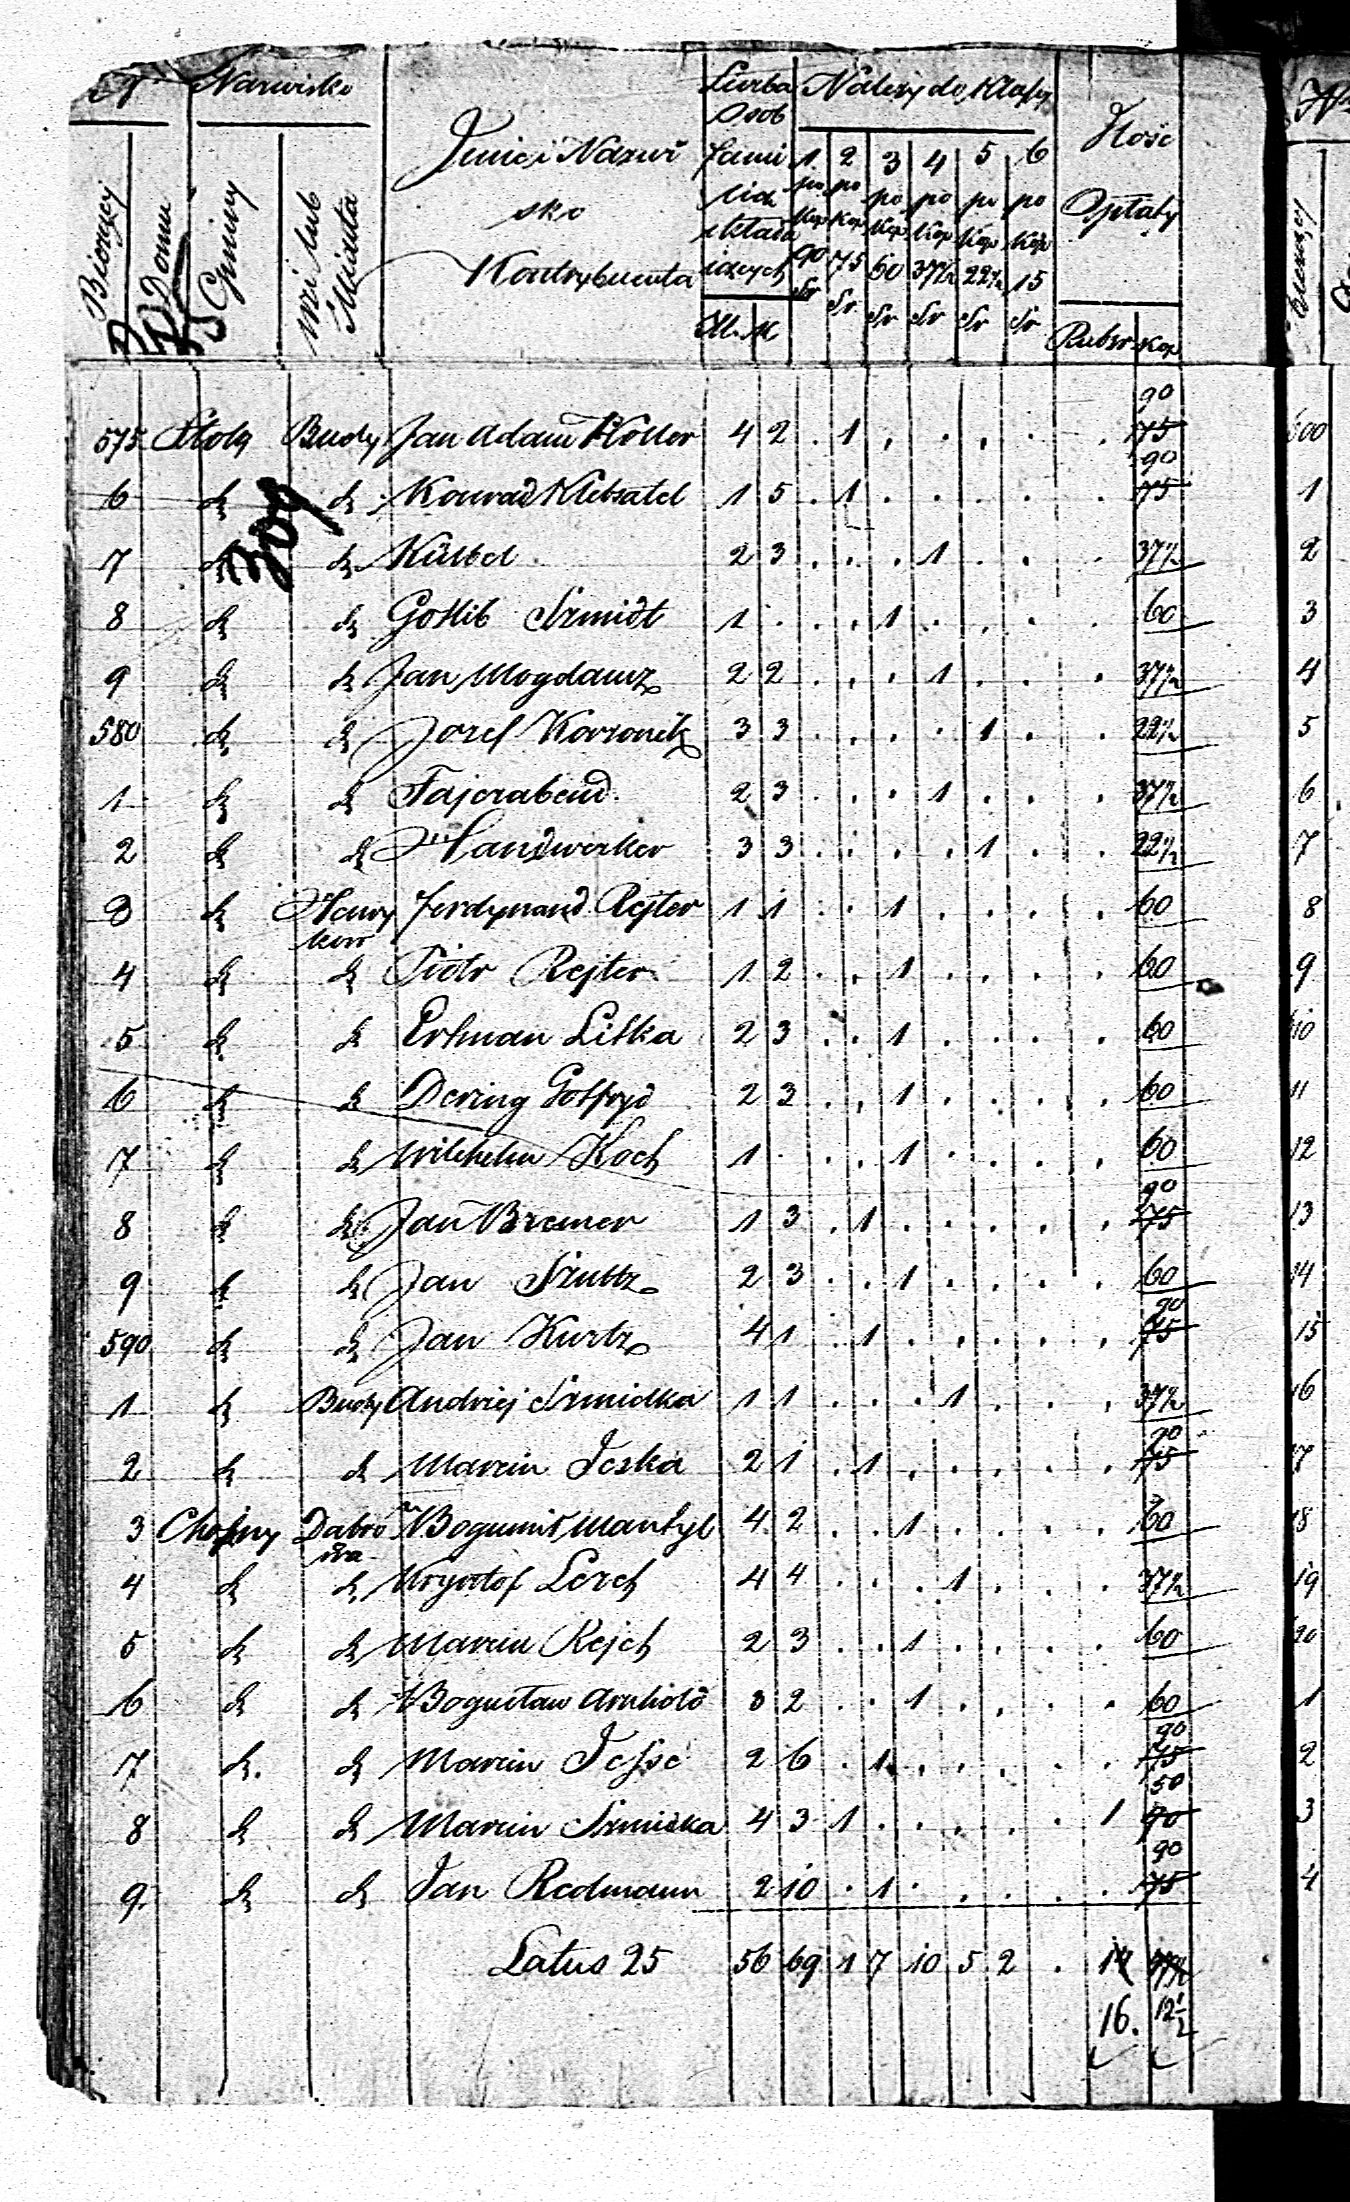 Nr Nazwisko Liczba Należy do Klassy
osob
Jmie i Nazwi fami 1 2 3 4 5 6 Ilość
sko lią po po po po po po
składa Kop Kop Kop Kop Kop Kop Opłaty
Kontrybuenta iących 90 75 60 37½ 22½ 15
Sr Sr Sr Sr Sr Sr
Bieżący Domu Gminy wsi lub Miasta M. M Rubsr Kop
90
575 Stoły Budy Jan Adam Koller 4 2 . 1 . . . . . 75
90
6 d d Konrad Klebsatel 1 5 . 1 . . . . . 75
309
7 d d Külbel 2 3 . . . 1 . . . 37½
8 d d Gottlib Szmidt 1 . . . 1 . . . . 60
9 d d Jan Mogdanz 2 2 . . . 1 . . . 37½
580 d d Jozef Korzonek 3 3 . . . . 1 . . 22½
1 d d Fajerabend 2 3 . . . 1 . . . 37½
2 d d Handwerker 3 3 . . . . 1 . . 22½
3 d Henry Ferdynand Rejter 1 1 . . 1 . . . . 60
kow
4 d d Piotr Rejter 1 2 . . 1 . . . . 60
5 d d Erdman Litka 2 3 . . 1 . . . . 60
6 d d Dering Gotfryd 2 3 . . 1 . . . . 60
7 d d Wilchelm Koch 1 . . . 1 . . . . 60
90
8 d d Jan Bremer 1 3 . 1 . . . . . 75
9 d d Jan Szultz 2 3 . . 1 . . . . 60
90
590 d d Jan Kurtz 4 1 . 1 . . . . . 75
1 d Budy Andrzej Szmidka 1 1 . . . 1 . . . 37½
90
2 d d Marcin Jeska 2 1 . 1 . . . . . 75
3 Chojny Dabró Bogumił Mantyl 4 2 . . 1 . . . . 60
wa
4 d d Krysztof Lerch 4 4 . . . 1 . . . 37½
5 d d Marcin Rejch 2 3 . . 1 . . . . 60
6 d d Bogusław Arnhold 3 2 . . 1 . . . . 60
90
7 d d Marcin Jesse 2 6 . 1 . . . . . 75
50
8 d d Marcin Szmidka 4 3 1 . . . . . 1 90
90
9 d d Jan Redmann 2 10 . 1 . . . . . 75
Latus 25 56 69 1 7 10 5 2 . 14 47½
16. 12½
600
1
2
3
4
5
6
7
8
9
610
11
12
13
14
15
16
17
18
19
20
1
2
3
4